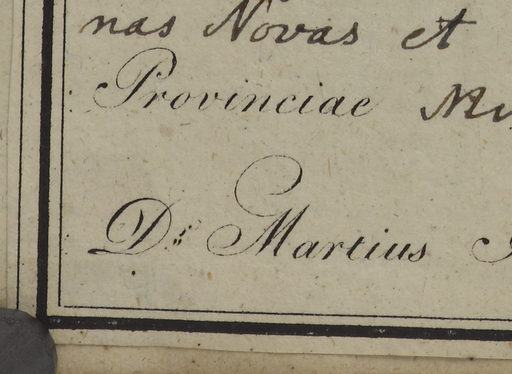 nas Novas et
Provinciae
Dr. Martius